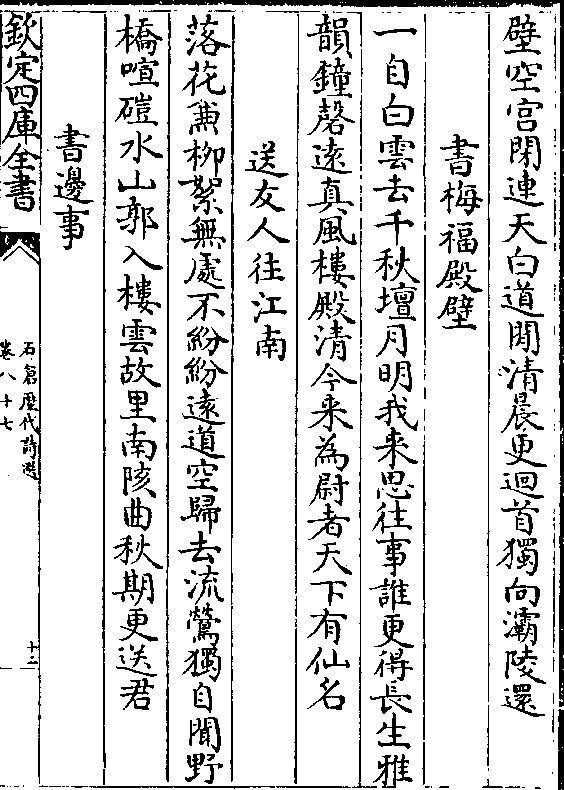 壁空宫閉連天白道閒清晨更迴首獨向灞陵還
書梅福殿壁
一自白雲去千秋壇月明我来思往事誰更得長生雅
韻鐘磬逺真風樓殿清今来為尉者天下有仙名
送友人往江南
落花兼柳絮無處不紛紛逺道空歸去流鶯獨自聞野
橋喧磑水山郭入樓雲故里南陔曲秋期更送君
書邊事
欽定四庫全書
石倉歷代詩選
卷八十七
十二